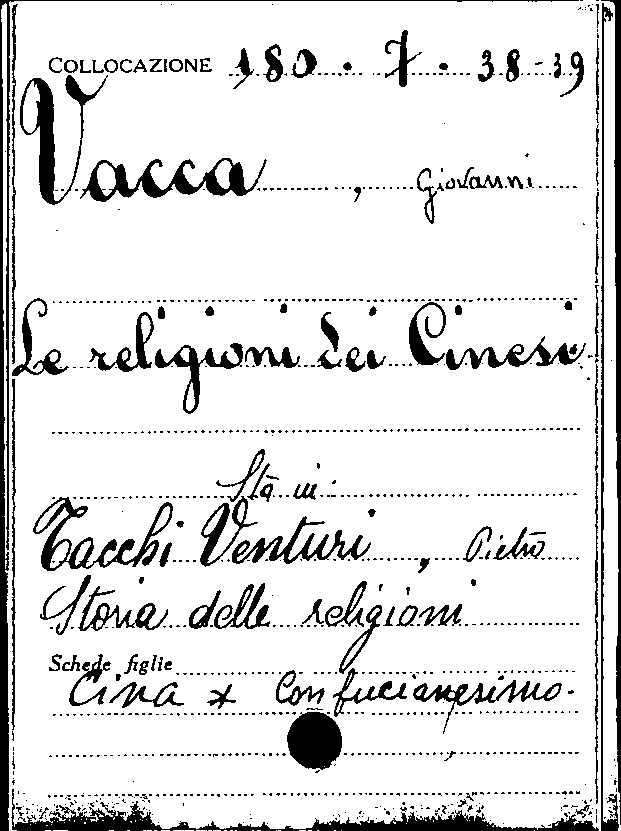 COLLOCAZIONE 180 . 7 . 38-39
Vacca , Giovanni
Le religioni dei Cinesi
Sta in:
Tacchi Venturi , Pietro
Storia delle religioni
Schede figlie
Cina * Confucianesimo.